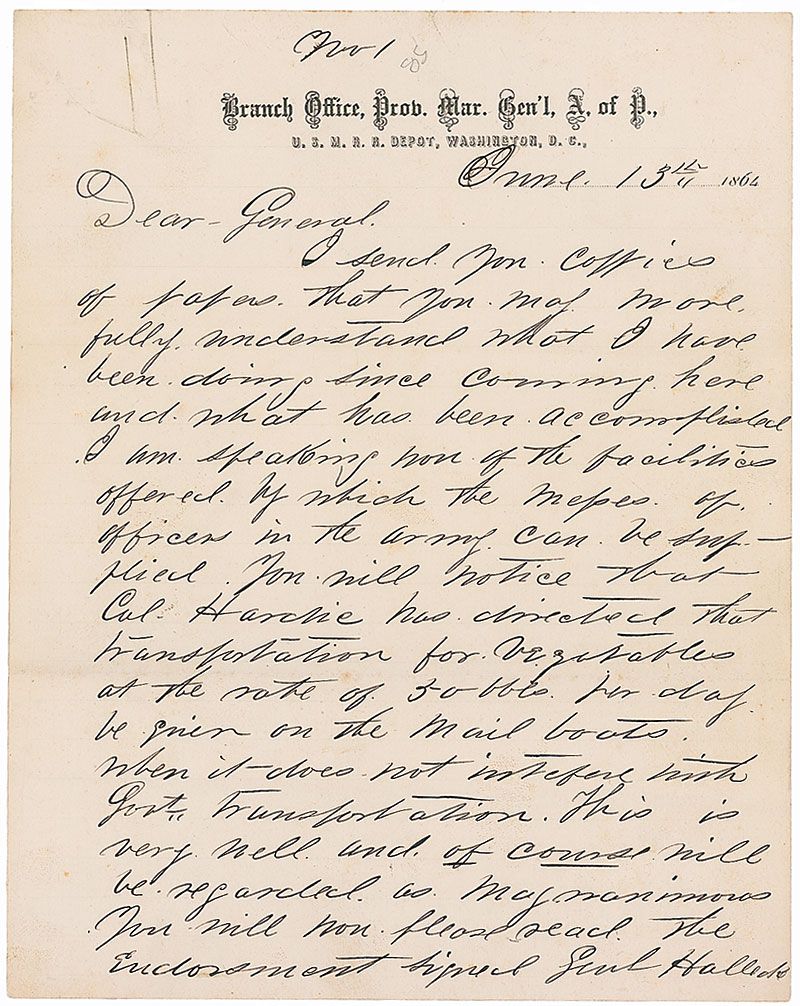 No 1
Branch Office, Prov. Mar. Gen'l, A. of P.,
U. S. M. R. R. DEPOT, WASHINGTON, D. C.,
June. 13th 1864
Dear General.
I send you coppies
of papers. that you may more.
fully. understand what I have
been. doing since coming. here
and. what has been. accomplished
I am. speaking now of the facilities
offered. by which the messes. of.
officers in the army. can. be sup-
plied. You will notice that
Col. Hardie has. directed that
transportation for. vegetables
at the rate of. 30 bbls. per. day.
be given on the Mail boats.
when it does. not intefere with
Govt. transportation. This is
very. well. and. of course will
be. regarded. as magnanimous
You will now. please read. the
Endorsment signed Genl Hallecks